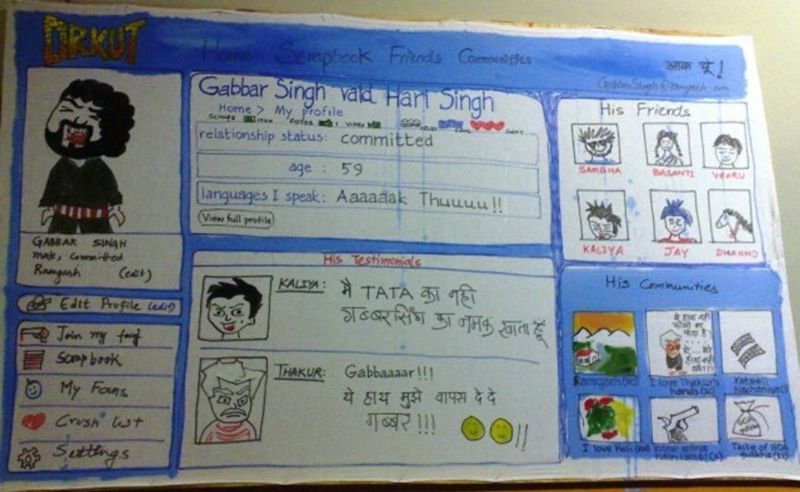 ORKUT
Home Scrapbook Friends Communities
आक थू!
Gabbar Singh Vald Hari Singh
Home > My profile
relationship status: committed
age : 59
languages I speak: Aaaaaak Thuuuu!!
View full profile
GABBAR SINGH
male, committed
Ramgarh (edit)
Edit Profile (edit)
Join my
Scrapbook
My Fans
Crush list
Settings
His Testimonials
KALIYA: मै TATA का नही
गब्बरसिंग का नमक खाता हूँ
THAKUR: Gabbaaaar!!!
ये हाथ मुझे वापस दे दे
गब्बर !!!
!!
His Friends
SAMBHA BASANTI VEERU
KALIYA JAY DHANNO
His Communities
Ramgarh I love Thakur's
hands
I love Holi Taste of GOA